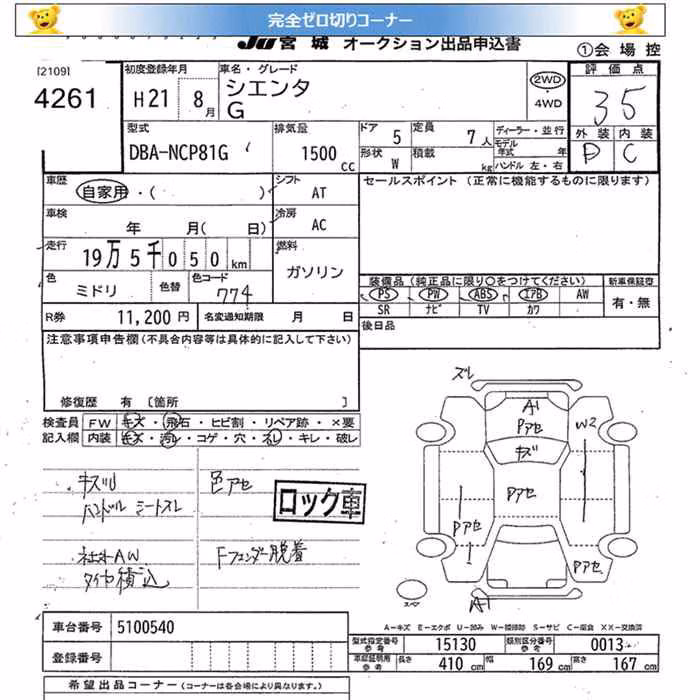 完全ゼロ切りコーナー
JU 宮城 オークション出品申込書
①会場控
[2109]
4261
初度登録年月
H21 8月
車名・グレード
シエンタ
G
2WD
・4WD
評価点
3.5
外装 内装
D C
型式
DBA-NCP81G
排気量
1500 CC
ドア 5
定員 7人
形状 W
積載 kg
ディーラー・並行
モデル年式 年
ハンドル 左・右
車歴
自家用・( )
シフト
AT
セールスポイント (正常に機能するものに限ります)
車検
年 月(日)
冷房
AC
走行
19万5千050km
燃料
ガソリン
色
ミドリ
色替
色コード
774
装備品(純正品に限り○をつけてください)
新車保証書
PS PW ABS エアB AW
SR ナビ TV カワ
有・無
R券 11,200円
名変通知期限 月 日
後日品
注意事項申告欄(不具合内容等は具体的に記入して下さい)
修復歴 有 〔箇所 〕
検査員記入欄
FW キズ・飛石・ヒビ割・リペア跡・×要
内装 キズ・汚レ・コゲ・穴・スレ・キレ・破レ
キズ凹
ハンドル シートスレ
色アセ
ロック車
社外AW
タイヤ積込
Fフェンダー脱着
ズレ
A1
Pアセ
W2
キズ
Pアセ
Pアセ
Pアセ
A1
スペア
A-キズ E-エクボ U-凹み W-補修跡 S-サビ C-腐食 XX-交換済
車台番号 5100540
登録番号
型式指定番号 参考 15130
類別区分番号 参考 0013
車庫証明用 参考 長さ 410cm 幅 169cm 高さ 167cm
希望出品コーナー(コーナーは各会場により異なります。)